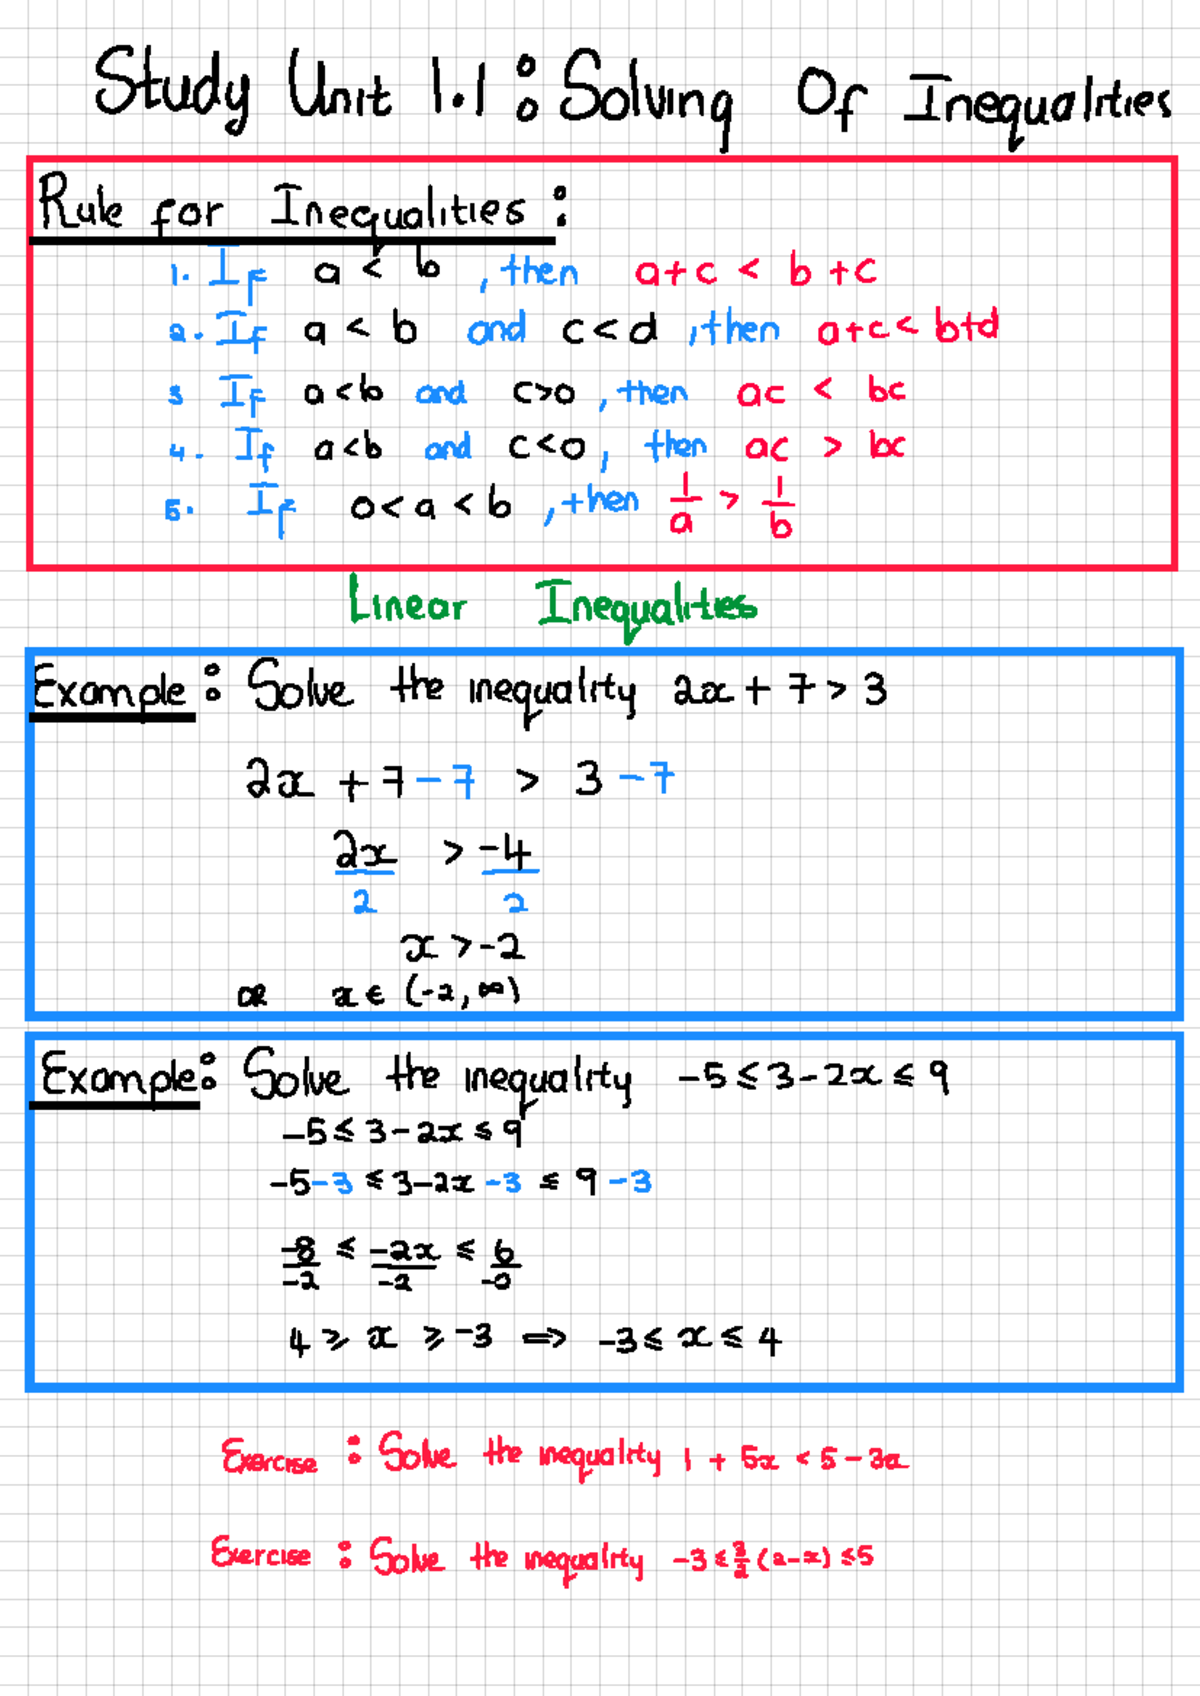 Study Unit 1.1 : Solving Of Inequalities
Rule for Inequalities :
1. If a < b , then a+c < b+c
2. If a < b and c < d , then a+c < b+d
3 If a<b and c>0 , then ac < bc
4. If a<b and c<0 , then ac > bc
5. If 0 < a < b , then 1/a > 1/b
Linear Inequalities
Example : Solve the inequality 2x + 7 > 3
2x + 7 - 7 > 3 - 7
2x/2 > -4/2
x > -2
OR x ∈ (-2, ∞)
Example : Solve the inequality -5 ≤ 3 - 2x ≤ 9
-5 ≤ 3 - 2x ≤ 9
-5 - 3 ≤ 3 - 2x - 3 ≤ 9 - 3
-8/-2 ≤ -2x/-2 ≤ 6/
4 ≥ x ≥ -3 ⟹ -3 ≤ x ≤ 4
Exercise : Solve the inequality 1 + 5x < 5 - 3x
Exercise : Solve the inequality -3 ≤ 3/2 (2-x) ≤ 5